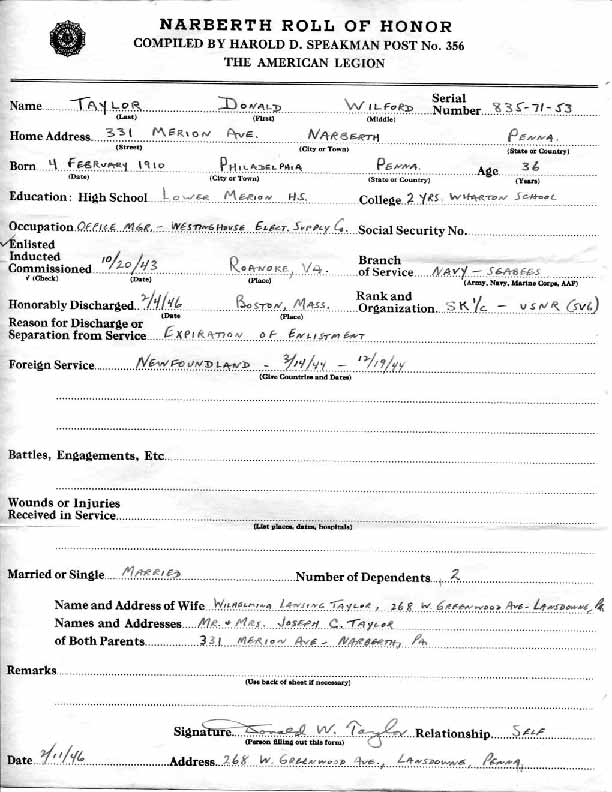 NARBERTH ROLL OF HONOR
COMPILED BY HAROLD D. SPEAKMAN POST No. 356
THE AMERICAN LEGION
Name TAYLOR DONALD WILFORD Serial Number 835-71-53
(Last) (First) (Middle)
Home Address 331 MERION AVE. NARBERTH PENNA.
(Street) (City or Town) (State or Country)
Born 4 FEBRUARY 1910 PHILADELPHIA PENNA. Age 36
(Date) (City or Town) (State or Country) (Years)
Education: High School LOWER MERION HS. College 2 YRS. WHARTON SCHOOL
Occupation OFFICE MGR. - WESTINGHOUSE ELECT. SUPPLY CO. Social Security No.
√ Enlisted
Inducted
Commissioned 10/20/43 ROANOKE, VA. Branch of Service NAVY - SEABEES
√ (Check) (Date) (Place) (Army, Navy, Marine Corps, AAF)
Honorably Discharged 2/4/46 BOSTON, MASS. Rank and Organization SK 1/c - USNR (SV6)
(Date (Place)
Reason for Discharge or
Separation from Service EXPIRATION OF ENLISTMENT
Foreign Service NEWFOUNDLAND - 3/14/44 - 12/19/44
(Give Countries and Dates)
Battles, Engagements, Etc.
Wounds or Injuries
Received in Service
(List places, dates, hospitals)
Married or Single MARRIED Number of Dependents 2
Name and Address of Wife WILHELMINA LANSING TAYLOR, 268 W. GREENWOOD AVE - LANSDOWNE, PA
Names and Addresses MR. & MRS. JOSEPH C. TAYLOR
of Both Parents 331 MERION AVE - NARBERTH, PA.
Remarks
(Use back of sheet if necessary)
Signature Donald W. Taylor Relationship SELF
(Person filling out this form)
Date 2/11/46 Address 268 W. GREENWOOD AVE., LANSDOWNE, PENNA.